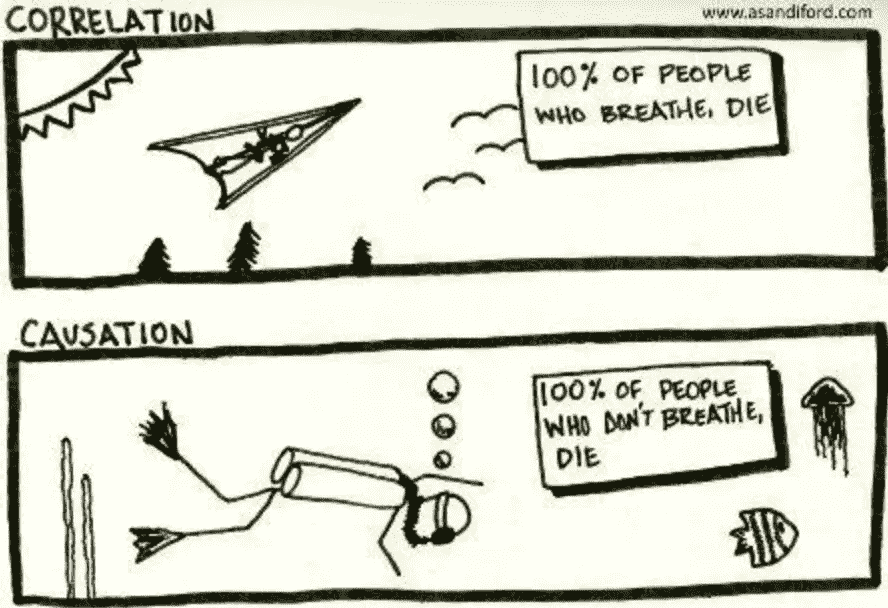 CORRELATION
www.asandiford.com
100% OF PEOPLE
WHO BREATHE, DIE
CAUSATION
100% OF PEOPLE
WHO DON'T BREATHE,
DIE